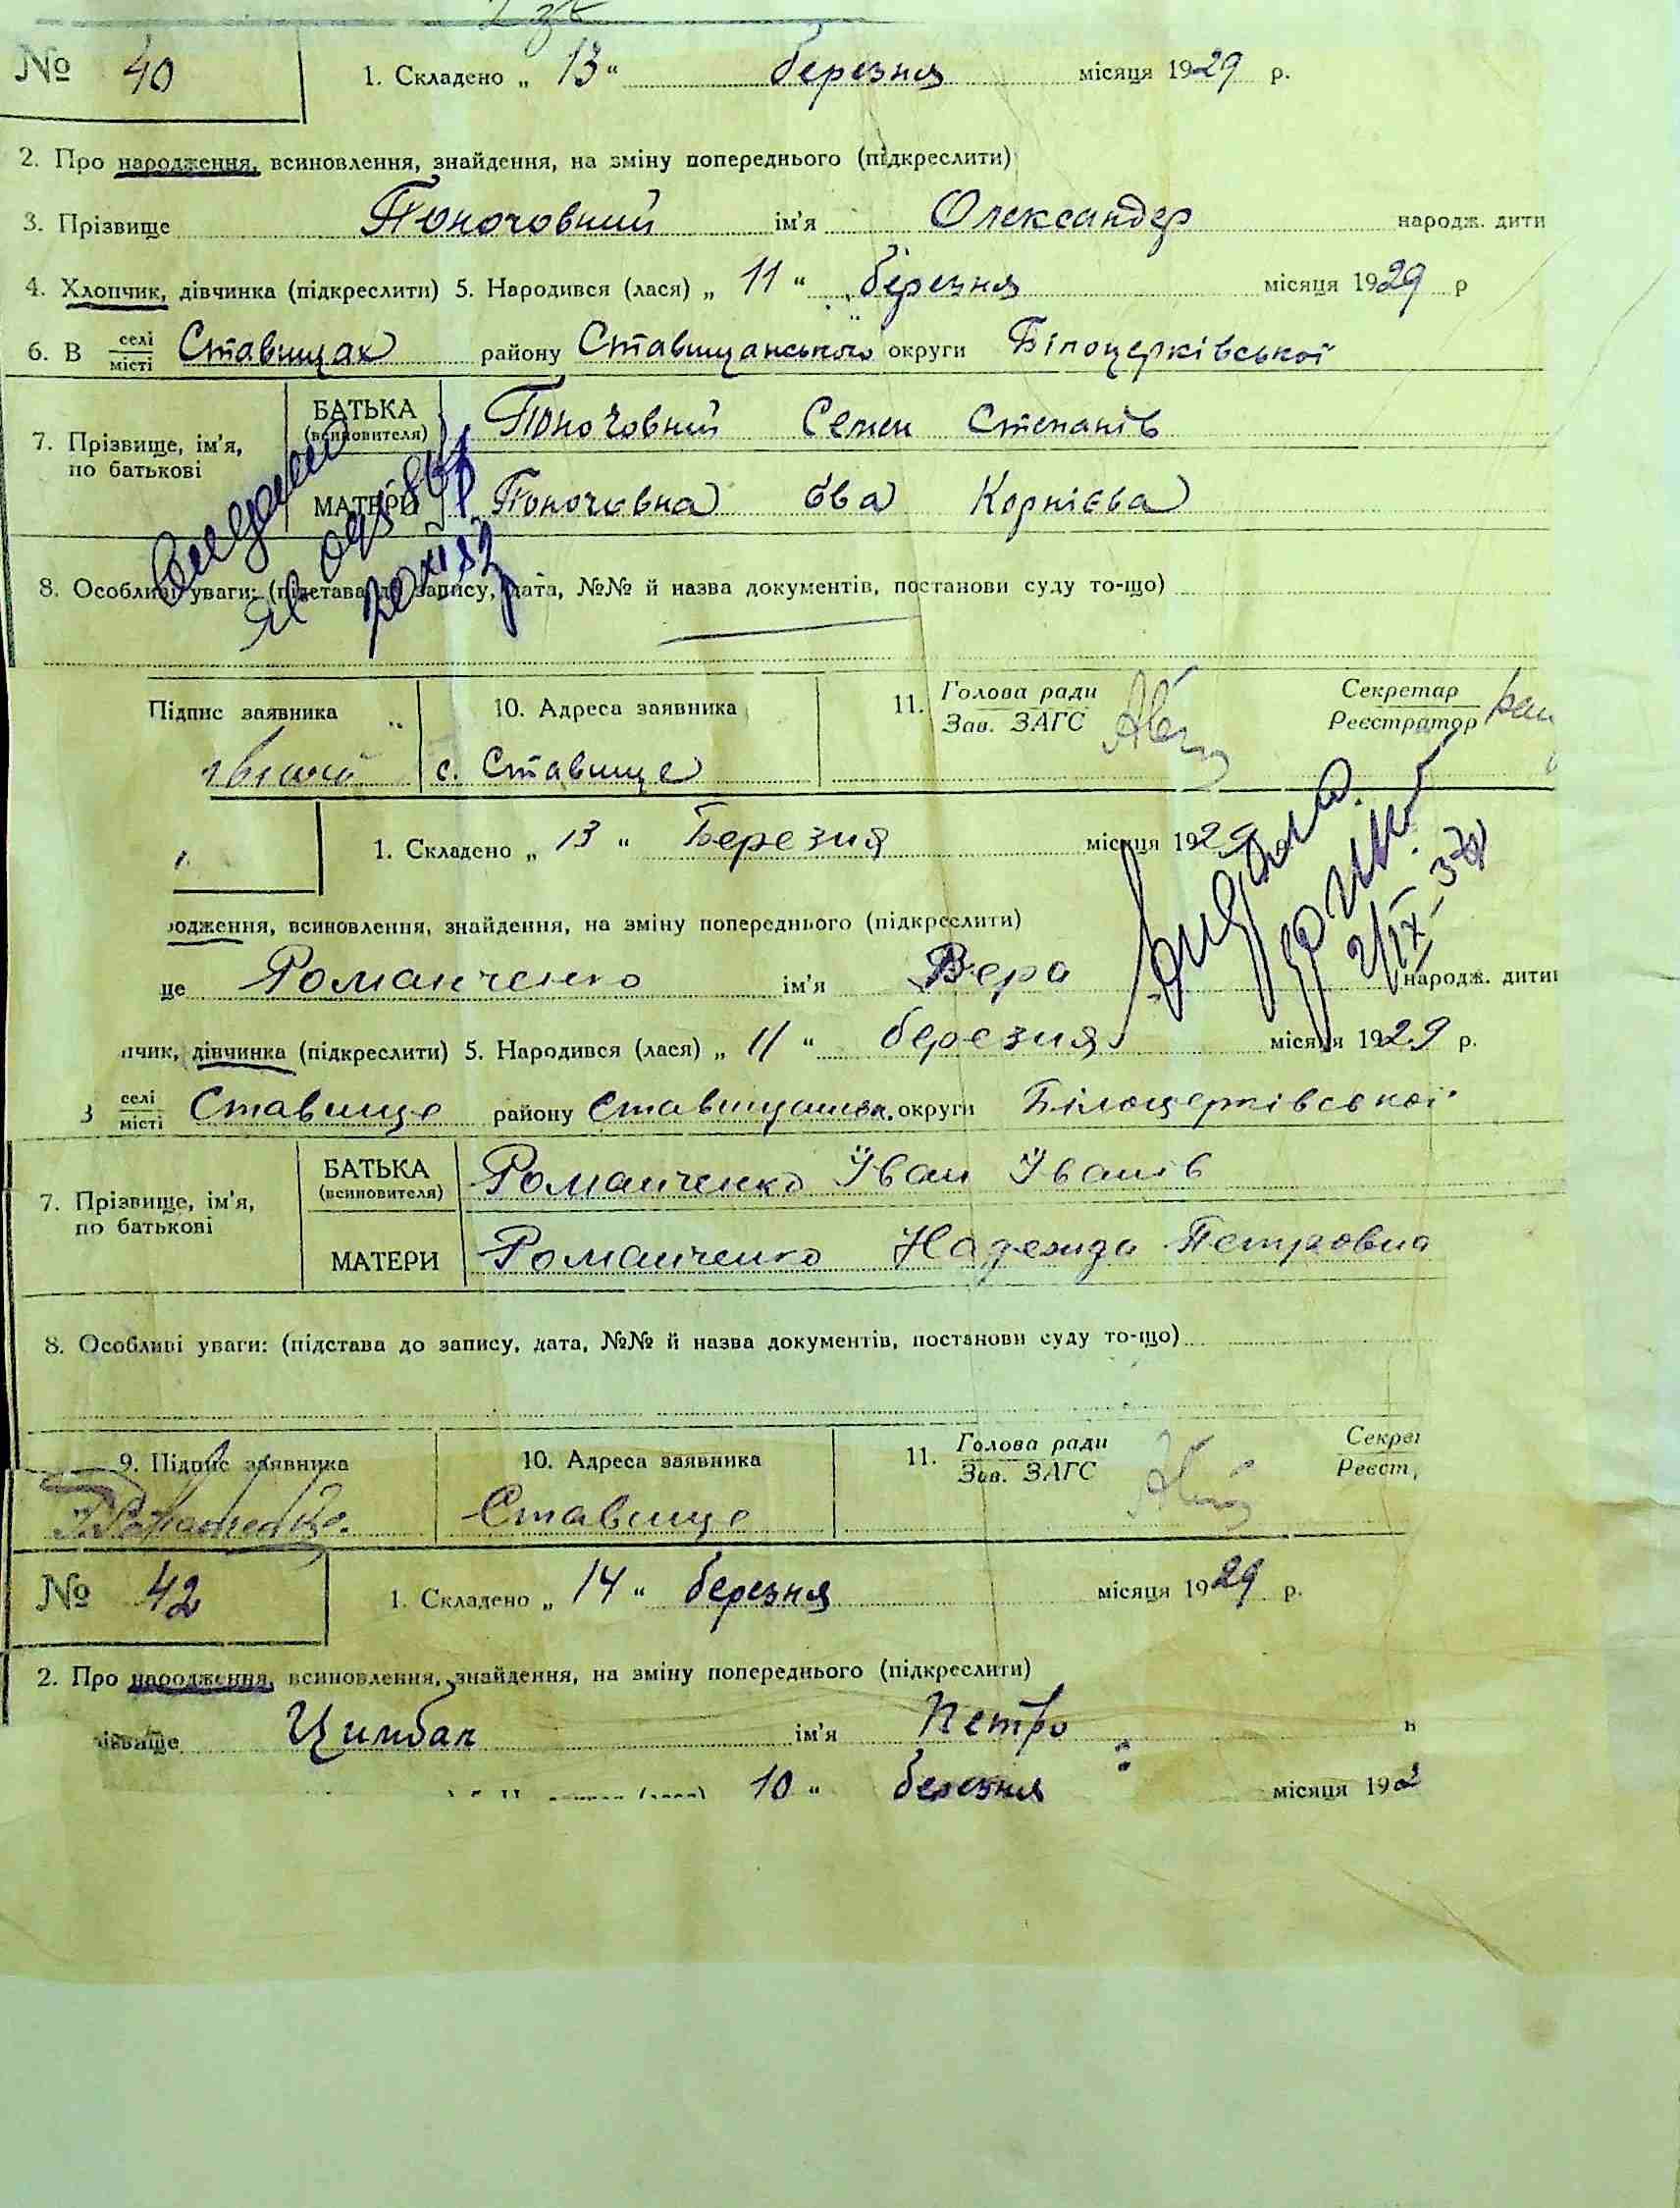 № 40
1. Складено „ 13 “ березня місяця 1929 р.
2. Про народження, всиновлення, знайдення, на зміну попереднього (підкреслити)
3. Прізвище Поночовний ім'я Олександер народж. дити
4. Хлопчик, дівчинка (підкреслити) 5. Народився (лася) „ 11 “ березня місяця 1929 р
6. В селі/місті Ставищах району Ставищанського округи Білоцерківської
7. Прізвище, ім'я, по батькові
БАТЬКА (всиновителя) Поночовний Семен Степанів
МАТЕРИ Поночовна Єва Корнієва
8. Особливі уваги: (підстава до запису, дата, №№ й назва документів, постанови суду то-що)
Підпис заявника 10. Адреса заявника 11. Голова ради Секретар
Зав. ЗАГС Реєстратор
с. Ставище
1. Складено „ 13 “ Березня місяця 1929
родження, всиновлення, знайдення, на зміну попереднього (підкреслити)
ще Романченко ім'я Вера народж. дитин
пчик, дівчинка (підкреслити) 5. Народився (лася) „ 11 “ березня місяця 1929 р.
В селі/місті Ставище району округи Білоцерківської
7. Прізвище, ім'я, по батькові
БАТЬКА (всиновителя) Романченко Іван Іванів
МАТЕРИ Романченко Надежда Петровна
8. Особливі уваги: (підстава до запису, дата, №№ й назва документів, постанови суду то-що)
9. Підпис заявника 10. Адреса заявника 11. Голова ради Секрет
Зав. ЗАГС Реєст
Ставище
№ 42
1. Складено „ 14 “ березня місяця 1929 р.
2. Про народження, всиновлення, знайдення, на зміну попереднього (підкреслити)
ізвище Цимбал ім'я Петро н
10 “ березня місяця 192